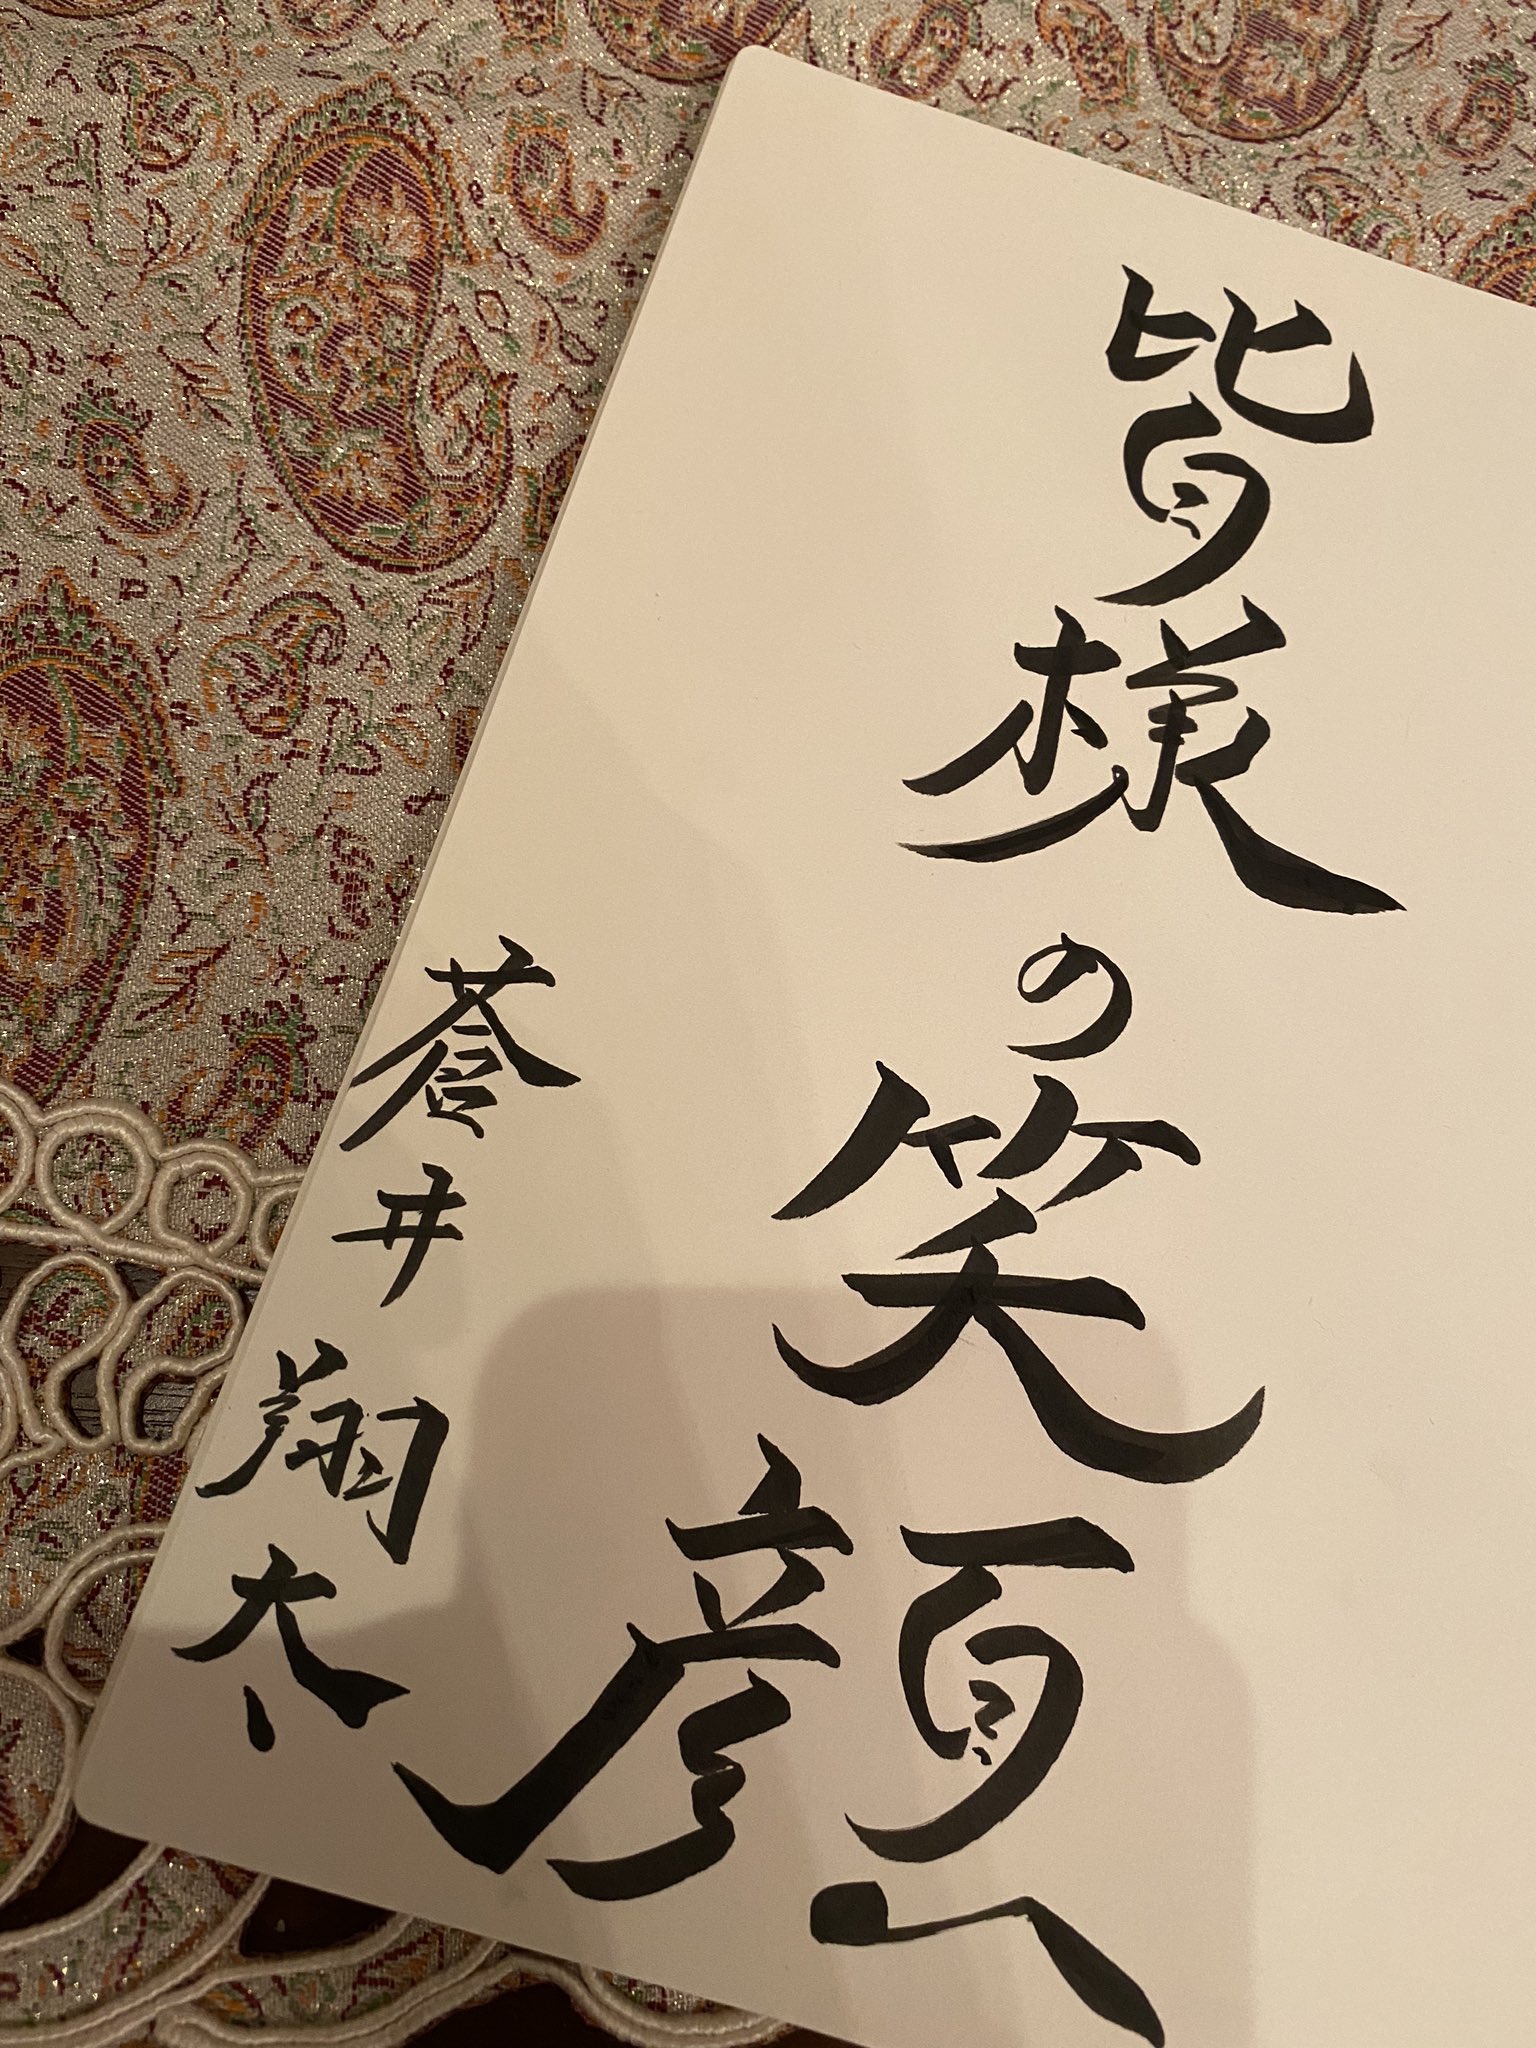 皆様の笑顔
蒼井翔太